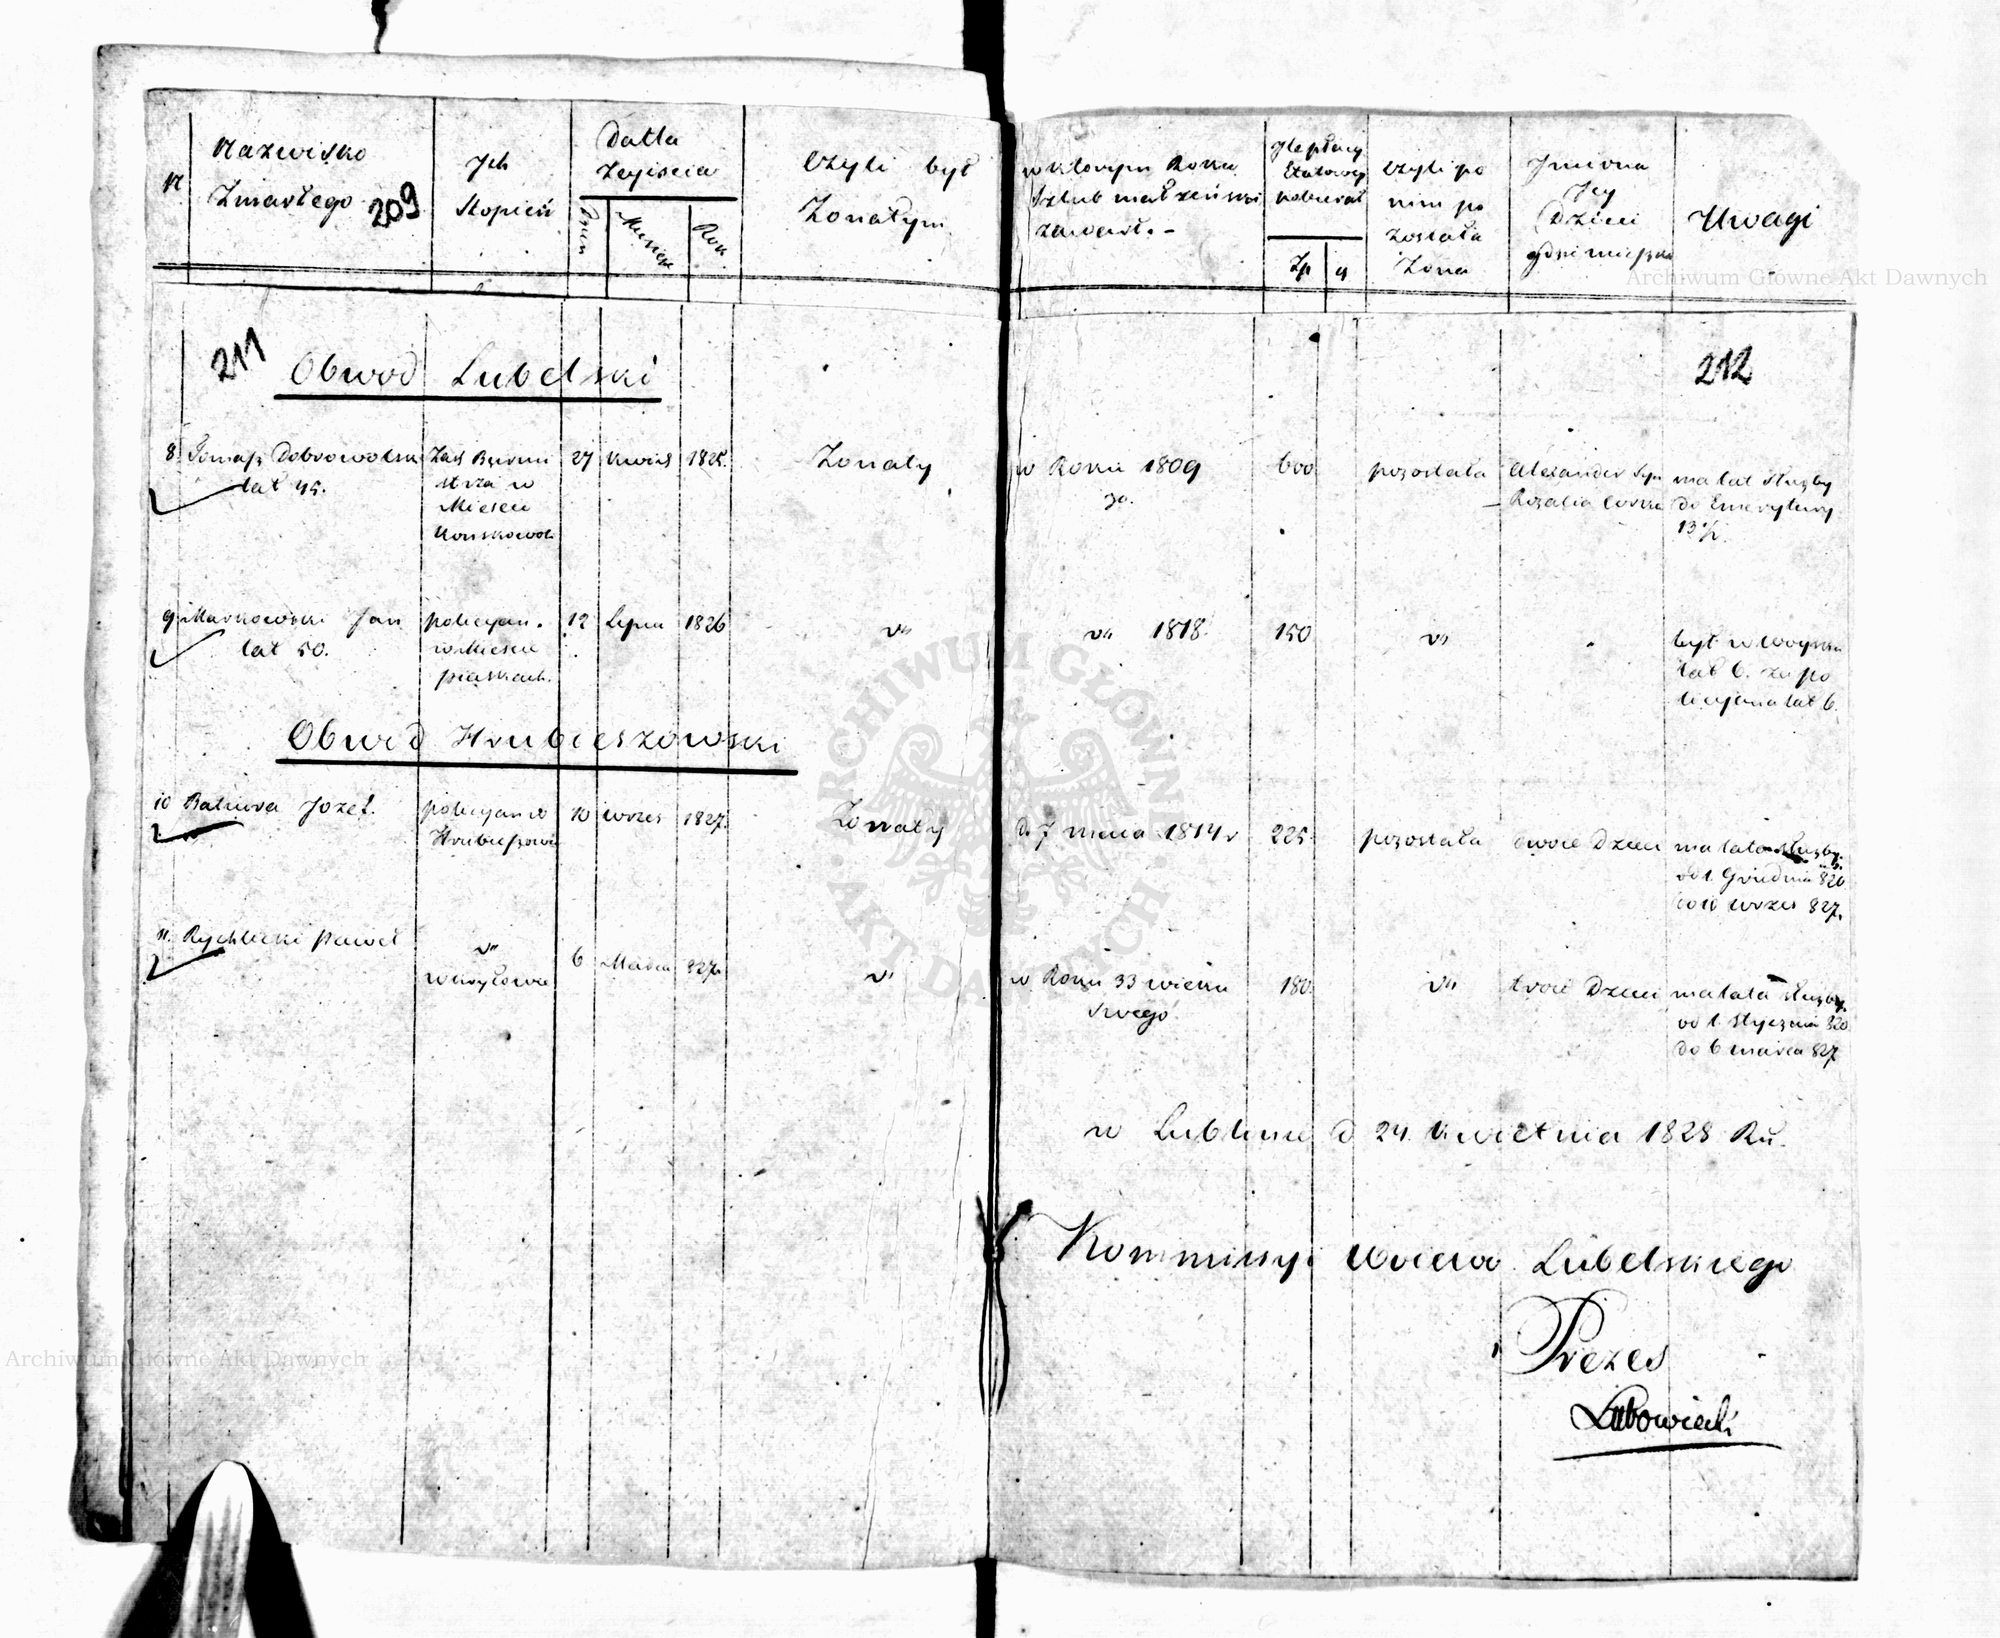 N
Nazwisko
Zmarłego
209
Jch
Stopień
Datta
Zeyścia
Dzień
Miesiąc
Rok
Czyli był
Zonatym
w którym Roku
Szlub małżeński
zawarł. -
Jle płacy
Etatowey
pobierał
Zp
g
czyli po
nim po
została
Zona
Jmiona
Jey
Dzieci
Uwagi
211
Obwod Lubelski
212
8 Tomasz Dobrowolski
lat 45.
Zast Burmi
strza w
Mieście
Konskowoli
27
Kwiet
1825.
Zonaty
w Roku 1809
go.
600
pozostała
Alexander Syn
Rozalia Corka
ma lat służby
do Emerytury
13 1/2.
9 Markowski Jan
lat 50.
policyan.
w Mieście
piaskach.
12
Lipca
1826
v"
v" 1818.
150
v"
był w woysku
lat 6. za po
licyana lat 6.
Obwod Hrubieszowski
10 Józef.
policyan w
Hrubieszowie
10
wrześ
1827.
Zonaty
d. 7 maia 1814 r
225.
pozostała
dwoie Dzieci
ma lata służby.
od 1. Grudnia 820
do 10 wrześ 827.
11. Rychlicki Paweł
v"
6
Marca
827.
v"
w Roku 33 wieku
swego
180.
v"
troie Dzieci
ma lata służby.
od 1. Stycznia 820
do 6 marca 827
w Lublinie d 24. Kwietnia 1828 Ru.
Kommissyi Woiewo Lubelskiego
Prezes
Lubowiecki
Archiwum Główne Akt Dawnych
Archiwum Główne Akt Dawnych
ARCHIWUM GŁÓWNE
AKT DAWNYCH